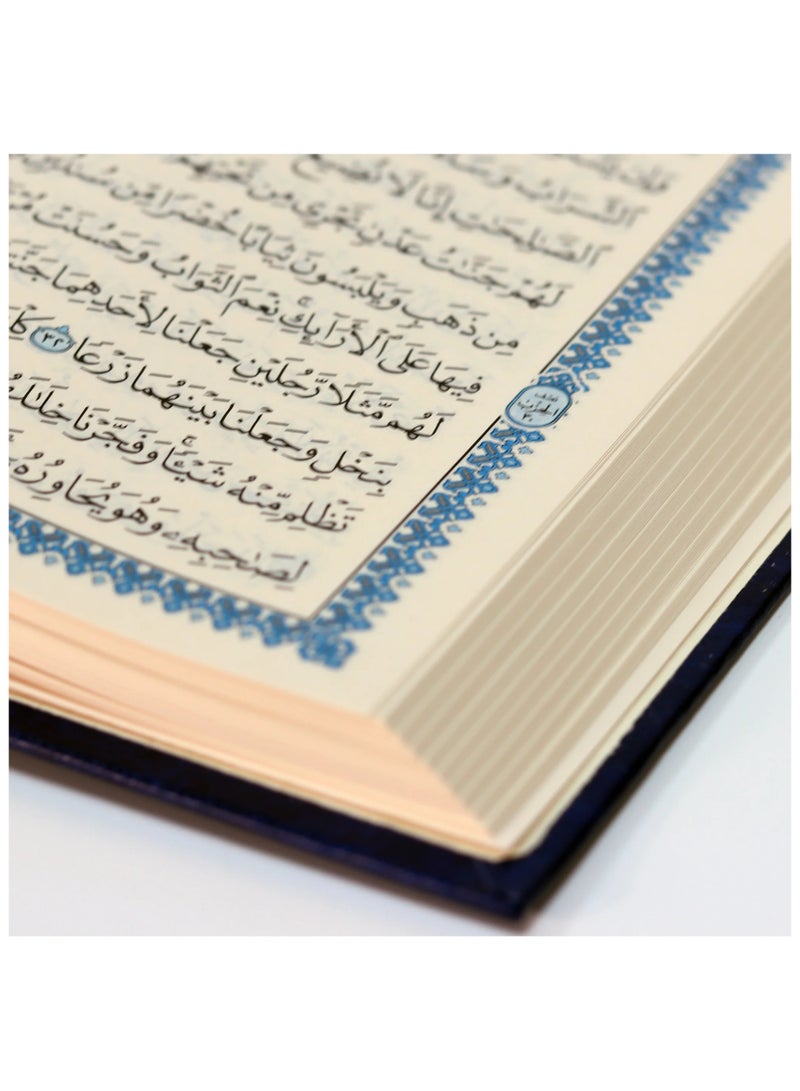 ٱلشَّرَابُ
ٱلصَّٰلِحَٰتِ إِنَّا لَا نُضِيعُ
لَهُمْ جَنَّٰتُ عَدْنٍ تَجْرِي مِن تَحْتِهِمُ
مِن ذَهَبٍ وَيَلْبَسُونَ ثِيَابًا خُضْرًا مِّن
فِيهَا عَلَى ٱلْأَرَآئِكِ نِعْمَ ٱلثَّوَابُ وَحَسُنَتْ
لَهُم مَّثَلًا رَّجُلَيْنِ جَعَلْنَا لِأَحَدِهِمَا
بِنَخْلٍ وَجَعَلْنَا بَيْنَهُمَا زَرْعًا ٣٢
تَظْلِم مِّنْهُ شَيْـًٔا وَفَجَّرْنَا
لِصَٰحِبِهِۦ وَهُوَ يُحَاوِرُهُۥٓ
نصف
الحزب
٣٠